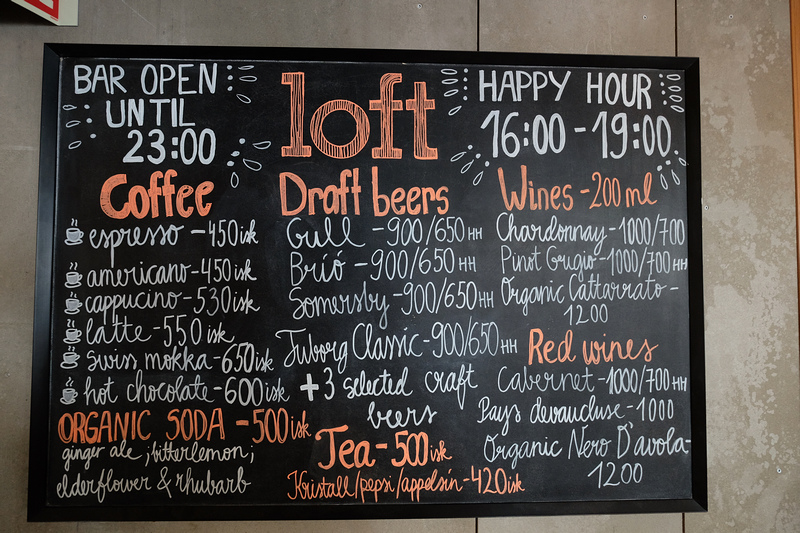 BAR OPEN
UNTIL
23:00
loft
HAPPY HOUR
16:00 - 19:00
Coffee
espresso - 450 isk
americano - 450 isk
cappucino - 530 isk
latte - 550 isk
swiss mokka - 650 isk
hot chocolate - 600 isk
ORGANIC SODA - 500 isk
ginger ale ; bitterlemon ;
elderflower & rhubarb
Draft beers
Gull - 900/650 HH
Brió - 900/650 HH
Somersby - 900/650 HH
Tuborg Classic - 900/650 HH
+3 selected craft
beers
Tea - 500 isk
Kristall/pepsi/appelsín - 420 isk
Wines - 200 ml
Chardonnay - 1000/700
Pinot Grugio - 1000/700 HH
Organic Cattarrato -
1200
Red wines
Cabernet - 1000/700 HH
Pays devaucluse - 1000
Organic Nero D'avola -
1200